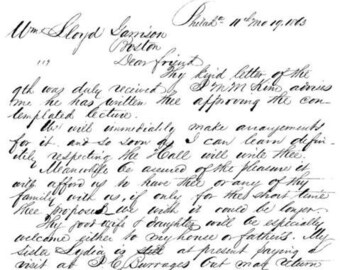 Philada 11th Mo 19, 1863
Wm Lloyd Garrison
Boston
Dear friend
Thy kind letter of the
9th was duly received. J M McKim advises
me he has written thee approving the con-
templated lecture.
We will immediately make arrangements
for it, and so soon as I can learn defin-
itely respecting the Hall will write thee.
Meanwhile be assured of the pleasure it
will afford us to have thee or any of thy
family with us, if only for the short time
thee proposes. We wish it could be longer.
Thy good wife & daughter will be especially
welcome either to my house or fathers. My
Sister Lydia is still at present paying a
visit at J E Burrages but may return